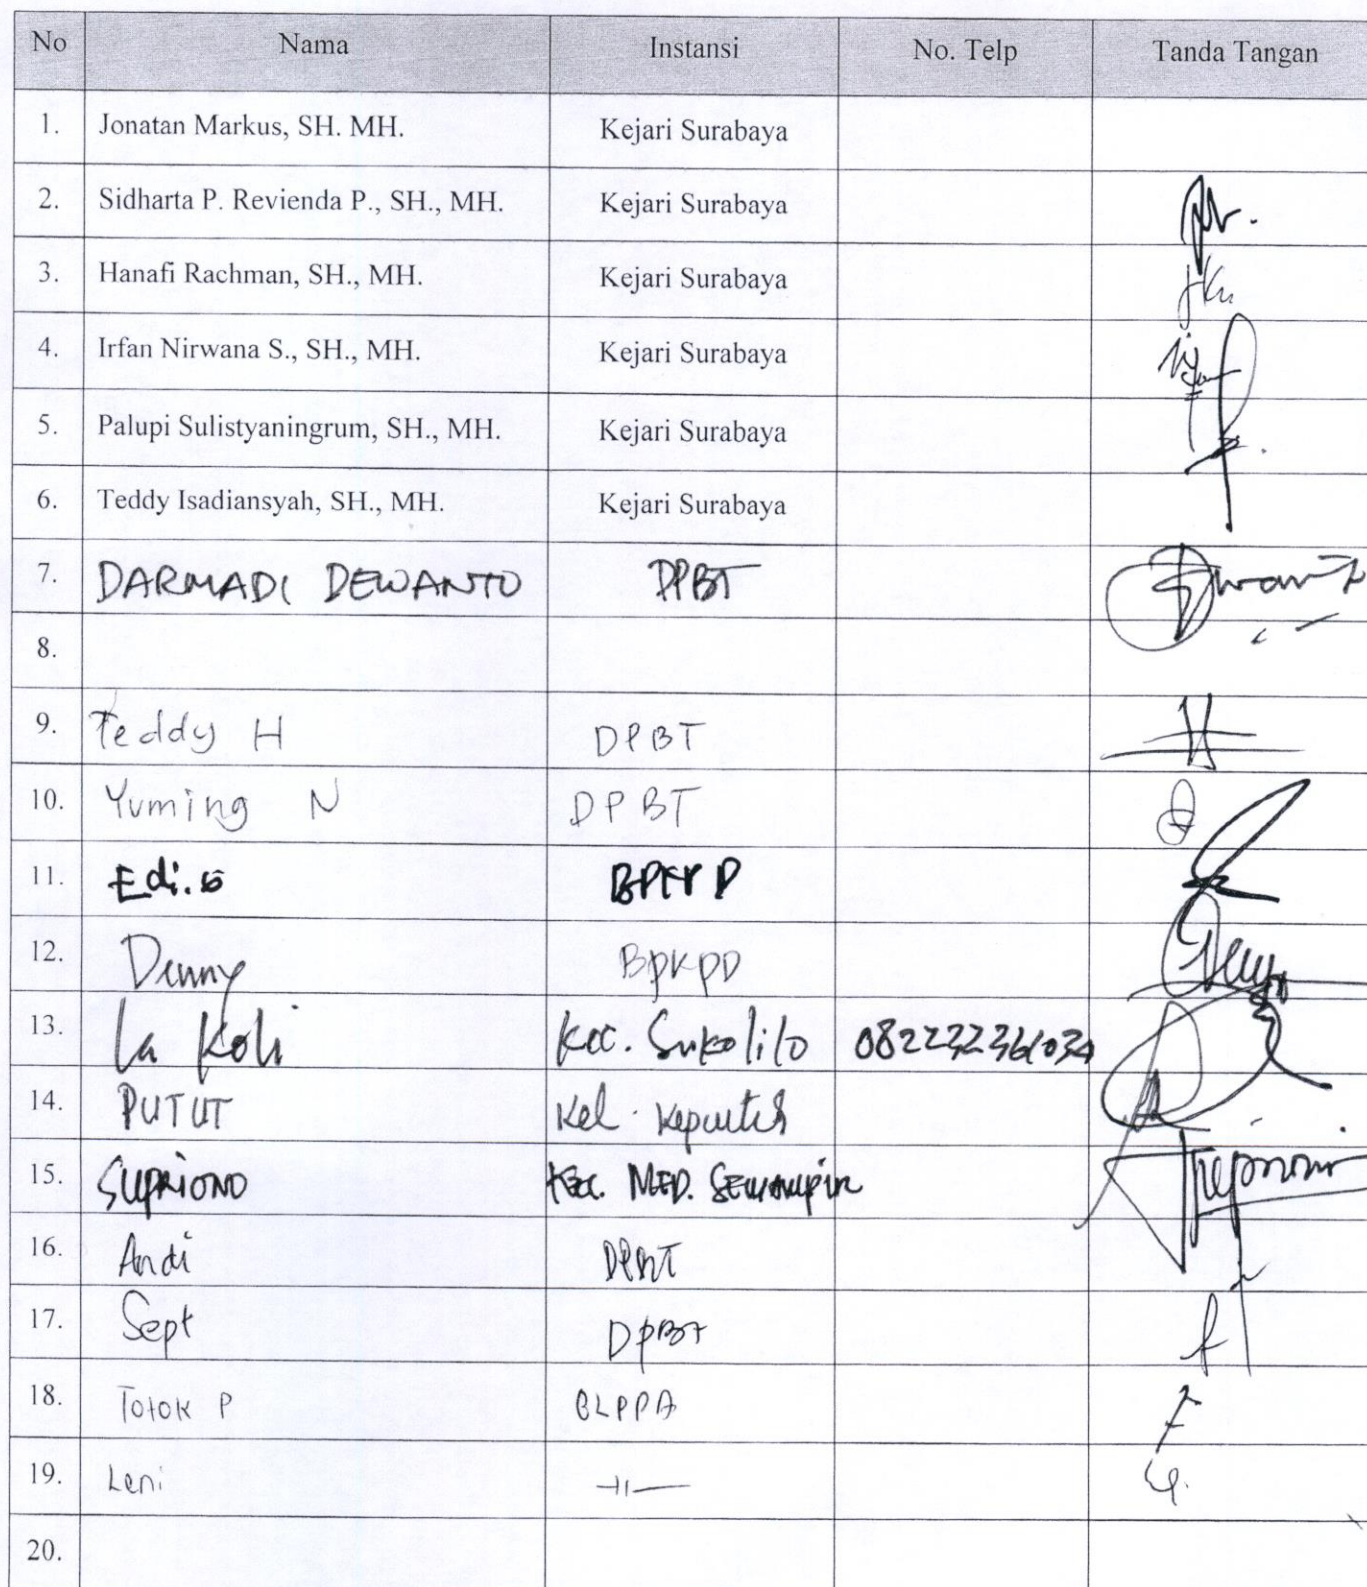 No Nama Instansi No. Telp Tanda Tangan
1. Jonatan Markus, SH. MH. Kejari Surabaya
2. Sidharta P. Revienda P., SH., MH. Kejari Surabaya
3. Hanafi Rachman, SH., MH. Kejari Surabaya
4. Irfan Nirwana S., SH., MH. Kejari Surabaya
5. Palupi Sulistyaningrum, SH., MH. Kejari Surabaya
6. Teddy Isadiansyah, SH., MH. Kejari Surabaya
7. DARMADI DEWANTO DPBT
8.
9. Teddy H DPBT
10. Yuming N DPBT
11. Edi. BPKPD
12. Denny BPKPD
13. La Koli Kec. Sukolilo
14. PUTUT Kel. Keputih
15. SUPRIONO Kec. MED. SEMAMPIR
16. Andi DPBT
17. Sept DPBT
18. Totok P BLPPA
19. Leni -11-
20.